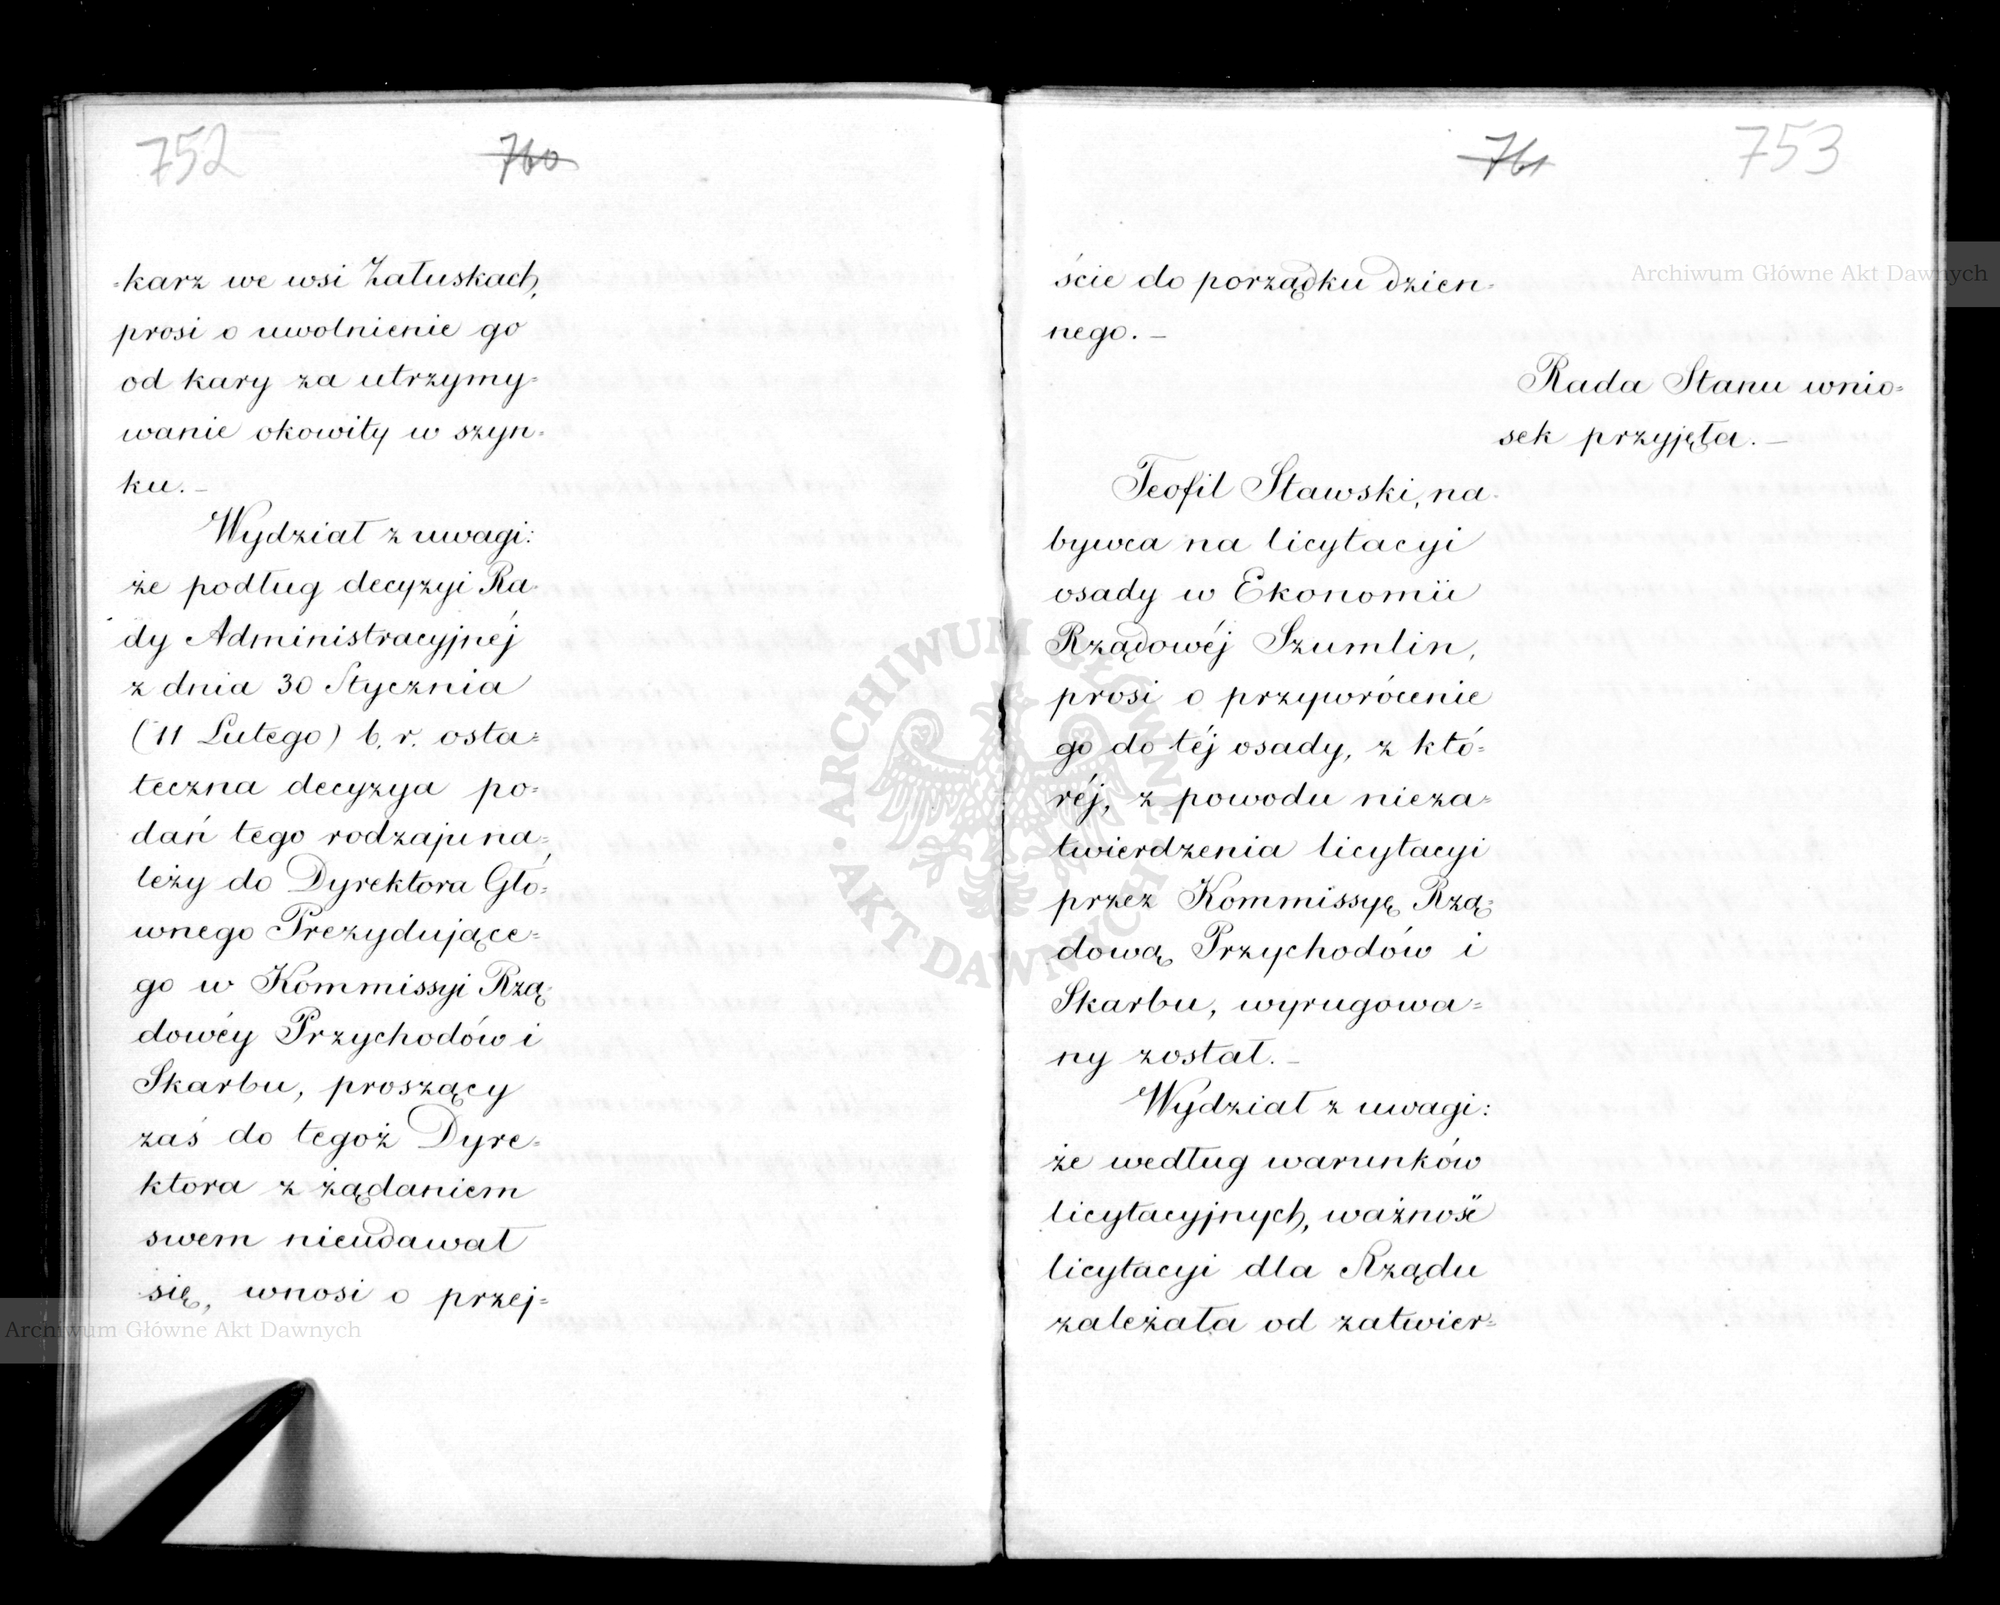 752
760
-karz we wsi Załuskach,
prosi o uwolnienie go
od kary za utrzymy-
wanie okowity w szyn-
ku. –
Wydział z uwagi:
że podług decyzyi Ra-
dy Administracyjnéj
z dnia 30 Stycznia
(11 Lutego) b. r. osta-
teczna decyzya po-
dań tego rodzaju na-
leży do Dyrektora Głó-
wnego Prezydujące-
go w Kommissyi Rzą-
dowéy Przychodów i
Skarbu, proszący
zaś do tegoż Dyre-
ktora z żądaniem
swem nieudawał
się, wnosi o przej-
761
753
ście do porządku dzien-
nego. –
Rada Stanu wnio-
sek przyjęła. –
Teofil Stawski, na-
bywca na licytacyi
osady w Ekonomii
Rządowéj Szumlin,
prosi o przywrócenie
go do téj osady, z któ-
réj, z powodu nieza-
twierdzenia licytacyi
przez Kommissyę Rzą-
dową Przychodów i
Skarbu, wyrugowa-
ny został. –
Wydział z uwagi:
że według warunków
licytacyjnych, ważność
licytacyi dla Rządu
zależała od zatwier-
Archiwum Główne Akt Dawnych
Archiwum Główne Akt Dawnych
ARCHIWUM GŁÓWNE AKT DAWNYCH